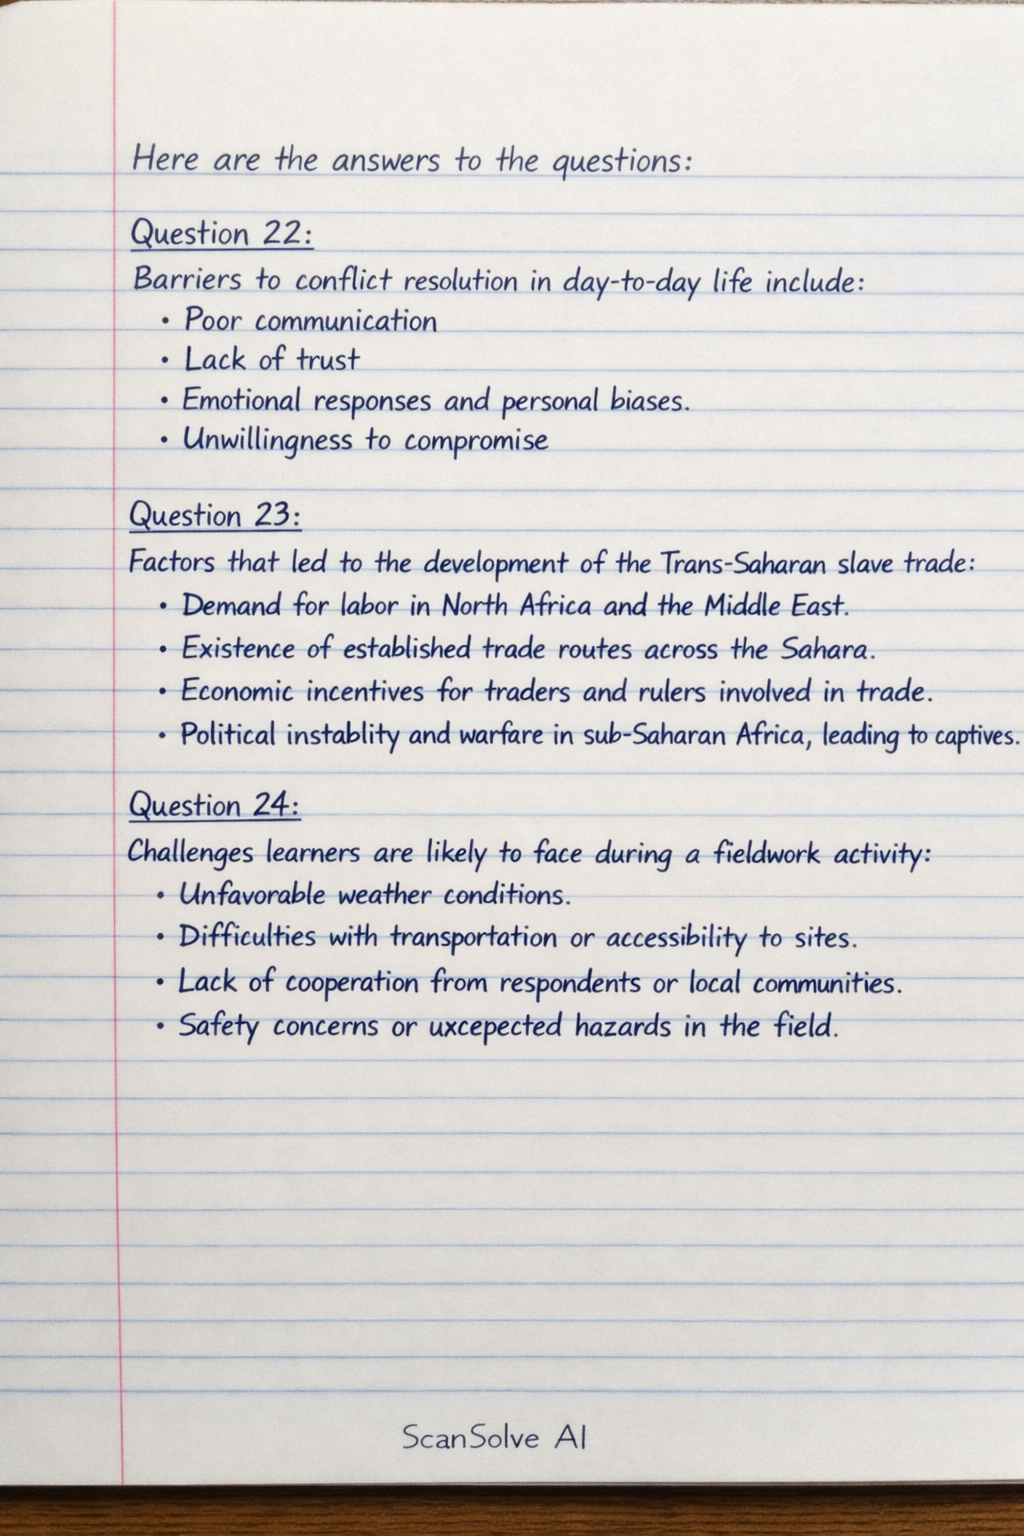 Here are the answers to the questions:
Question 22:
Barriers to conflict resolution in day-to-day life include:
• Poor communication
• Lack of trust
• Emotional responses and personal biases.
• Unwillingness to compromise
Question 23:
Factors that led to the development of the Trans-Saharan slave trade:
• Demand for labor in North Africa and the Middle East.
• Existence of established trade routes across the Sahara.
• Economic incentives for traders and rulers involved in trade.
• Political instablity and warfare in sub-Saharan Africa, leading to captives.
Question 24:
Challenges learners are likely to face during a fieldwork activity:
• Unfavorable weather conditions.
• Difficulties with transportation or accessibility to sites.
• Lack of cooperation from respondents or local communities.
• Safety concerns or uxcepected hazards in the field.
ScanSolve AI